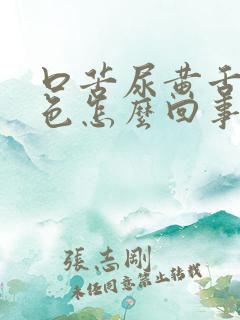 口苦尿黄舌
色怎麼回事
張志剛
未经同意禁止转载